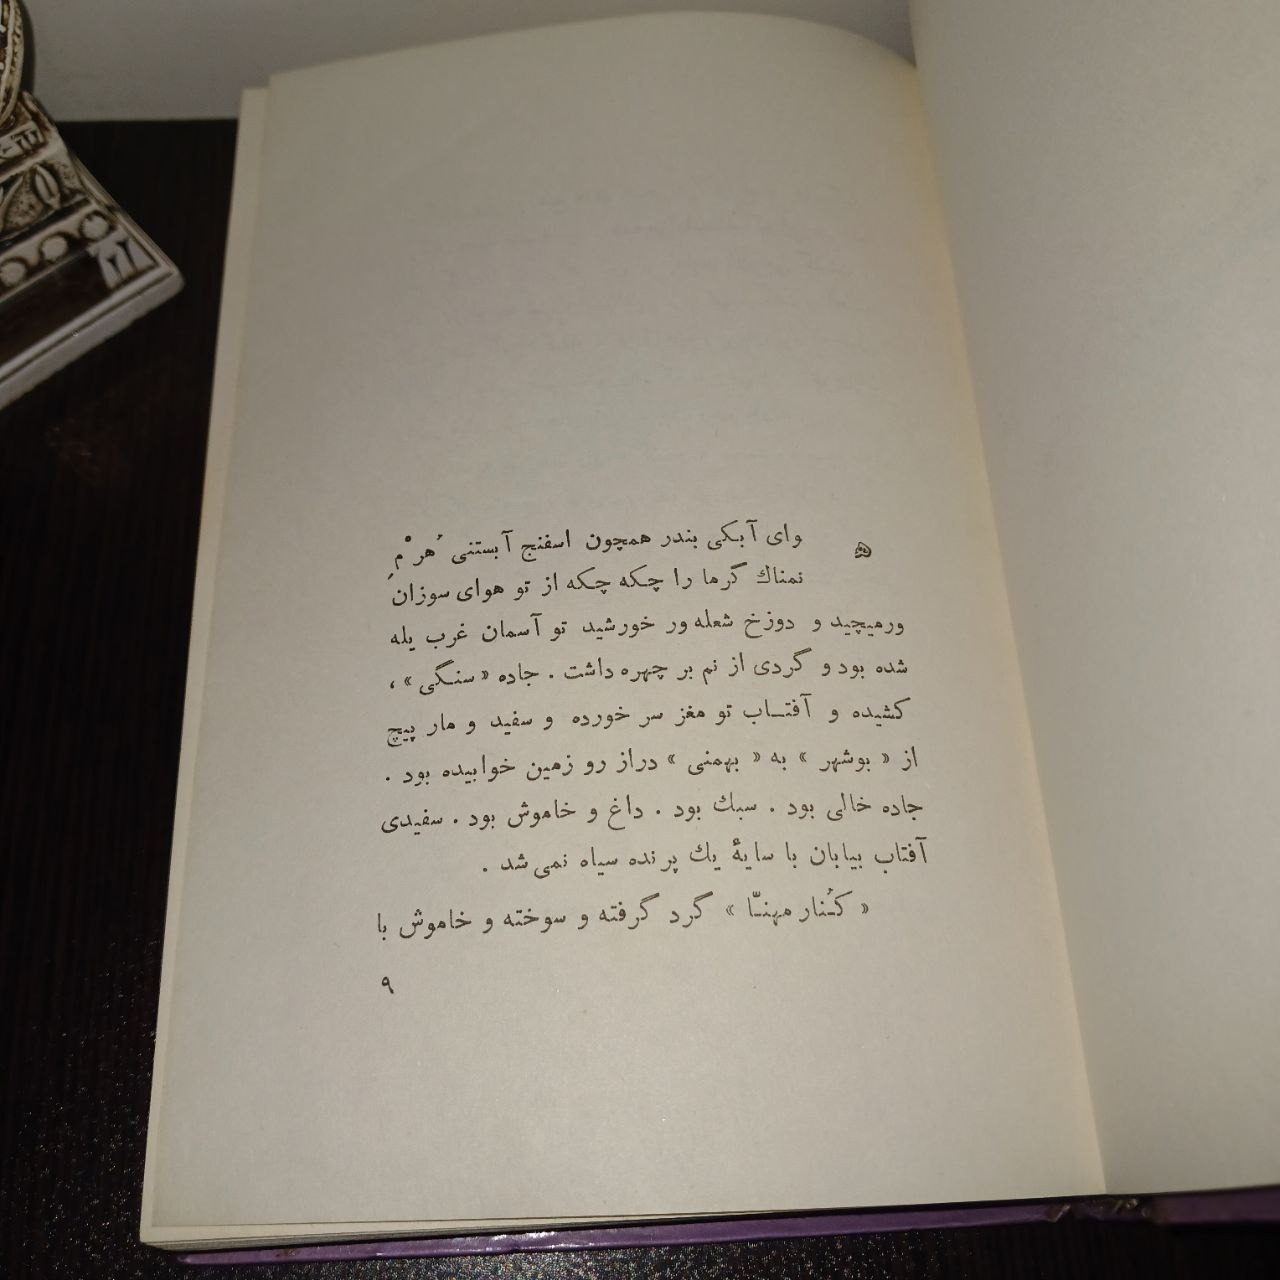 ﻫوای آبکی بندر همچون اسفنج آبستنی هُرْمِ
نمناك گرما را چکه چکه از تو هوای سوزان
ورمیچید و دوزخ شعله ور خورشید تو آسمان غرب یله
شده بود و گردی از نم بر چهره داشت . جاده «سنگی» ،
کشیده و آفتاب تو مغز سر خورده و سفید و مار پیچ
از « بوشهر » به « بهمنی » دراز رو زمین خوابیده بود .
جاده خالی بود . سبك بود . داغ و خاموش بود . سفیدی
آفتاب بیابان با سایهٔ یك پرنده سیاه نمی‌شد .
« کُنار مهنّا » گرد گرفته و سوخته و خاموش با
۹